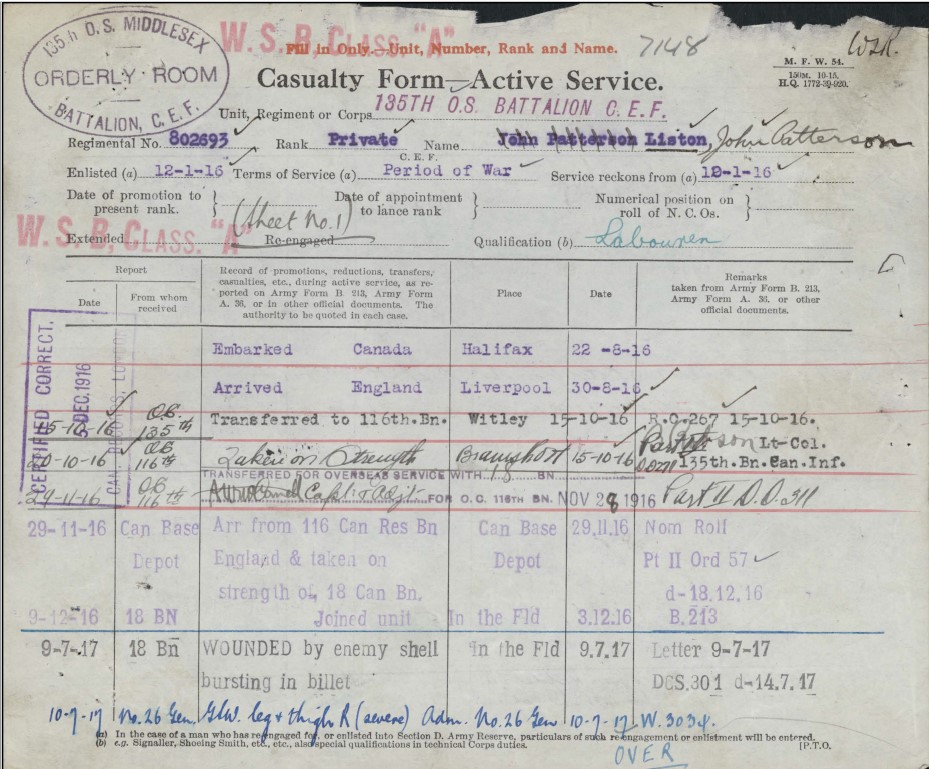 135th O.S. MIDDLESEX
ORDERLY ROOM
BATTALION, C.E.F.
W.S.B, CLASS. "A"
Fill in Only.—Unit, Number, Rank and Name.
7148
M. F. W. 54.
150M. 10-15.
H.Q. 1772-39-920.
Casualty Form—Active Service.
Unit, Regiment or Corps 135TH O.S. BATTALION C.E.F.
Regimental No. 802693 Rank Private Name John Patterson Liston, John Patterson
C. E. F.
Enlisted (a) 12-1-16 Terms of Service (a) Period of War Service reckons from (a) 12-1-16
Date of promotion to present rank. } Date of appointment to lance rank } Numerical position on roll of N. C. Os. }
(Sheet No. 1)
W.S.B, CLASS. "A"
Extended Re-engaged Qualification (b) Labourer
Report
Date
From whom received
Record of promotions, reductions, transfers, casualties, etc., during active service, as reported on Army Form B. 213, Army Form A. 36, or in other official documents. The authority to be quoted in each case.
Place
Date
Remarks
taken from Army Form B. 213, Army Form A. 36, or other official documents.
CERTIFIED CORRECT.
5 DEC. 1916
Embarked Canada Halifax 22 -8-16
Arrived England Liverpool 30-8-16
15-10-16 O.C. 135th Transferred to 116th.Bn. Witley 15-10-16 R.O.267 15-10-16.
Lt-Col.
135th.Bn.Can.Inf.
20-10-16 O.C. 116th Taken on Strength Bramshott 15-10-16 Part II
TRANSFERRED FOR OVERSEAS SERVICE WITH 18 BN
29-11-16 O.C. 116th Capt. & Adjt FOR O.C. 116TH BN. NOV 28 1916 Part II D.O. 311
29-11-16 Can Base Arr from 116 Can Res Bn Can Base 29.11.16 Nom Roll
Depot England & taken on Depot Pt II Ord 57
strength of 18 Can Bn. d-18.12.16
9-12-16 18 BN Joined unit In the Fld 3.12.16 B.213
9-7-17 18 Bn WOUNDED by enemy shell In the Fld 9.7.17 Letter 9-7-17
bursting in billet DCS.301 d-14.7.17
10-7-17 No. 26 Gen. GSW. leg & thigh R (severe) Adm. No. 26 Gen 10-7-17 W.3034.
(a) In the case of a man who has re-engaged for, or enlisted into Section D. Army Reserve, particulars of such re-engagement or enlistment will be entered.
(b) e.g. Signaller, Shoeing Smith, etc., etc., also special qualifications in technical Corps duties.
[P.T.O.
OVER